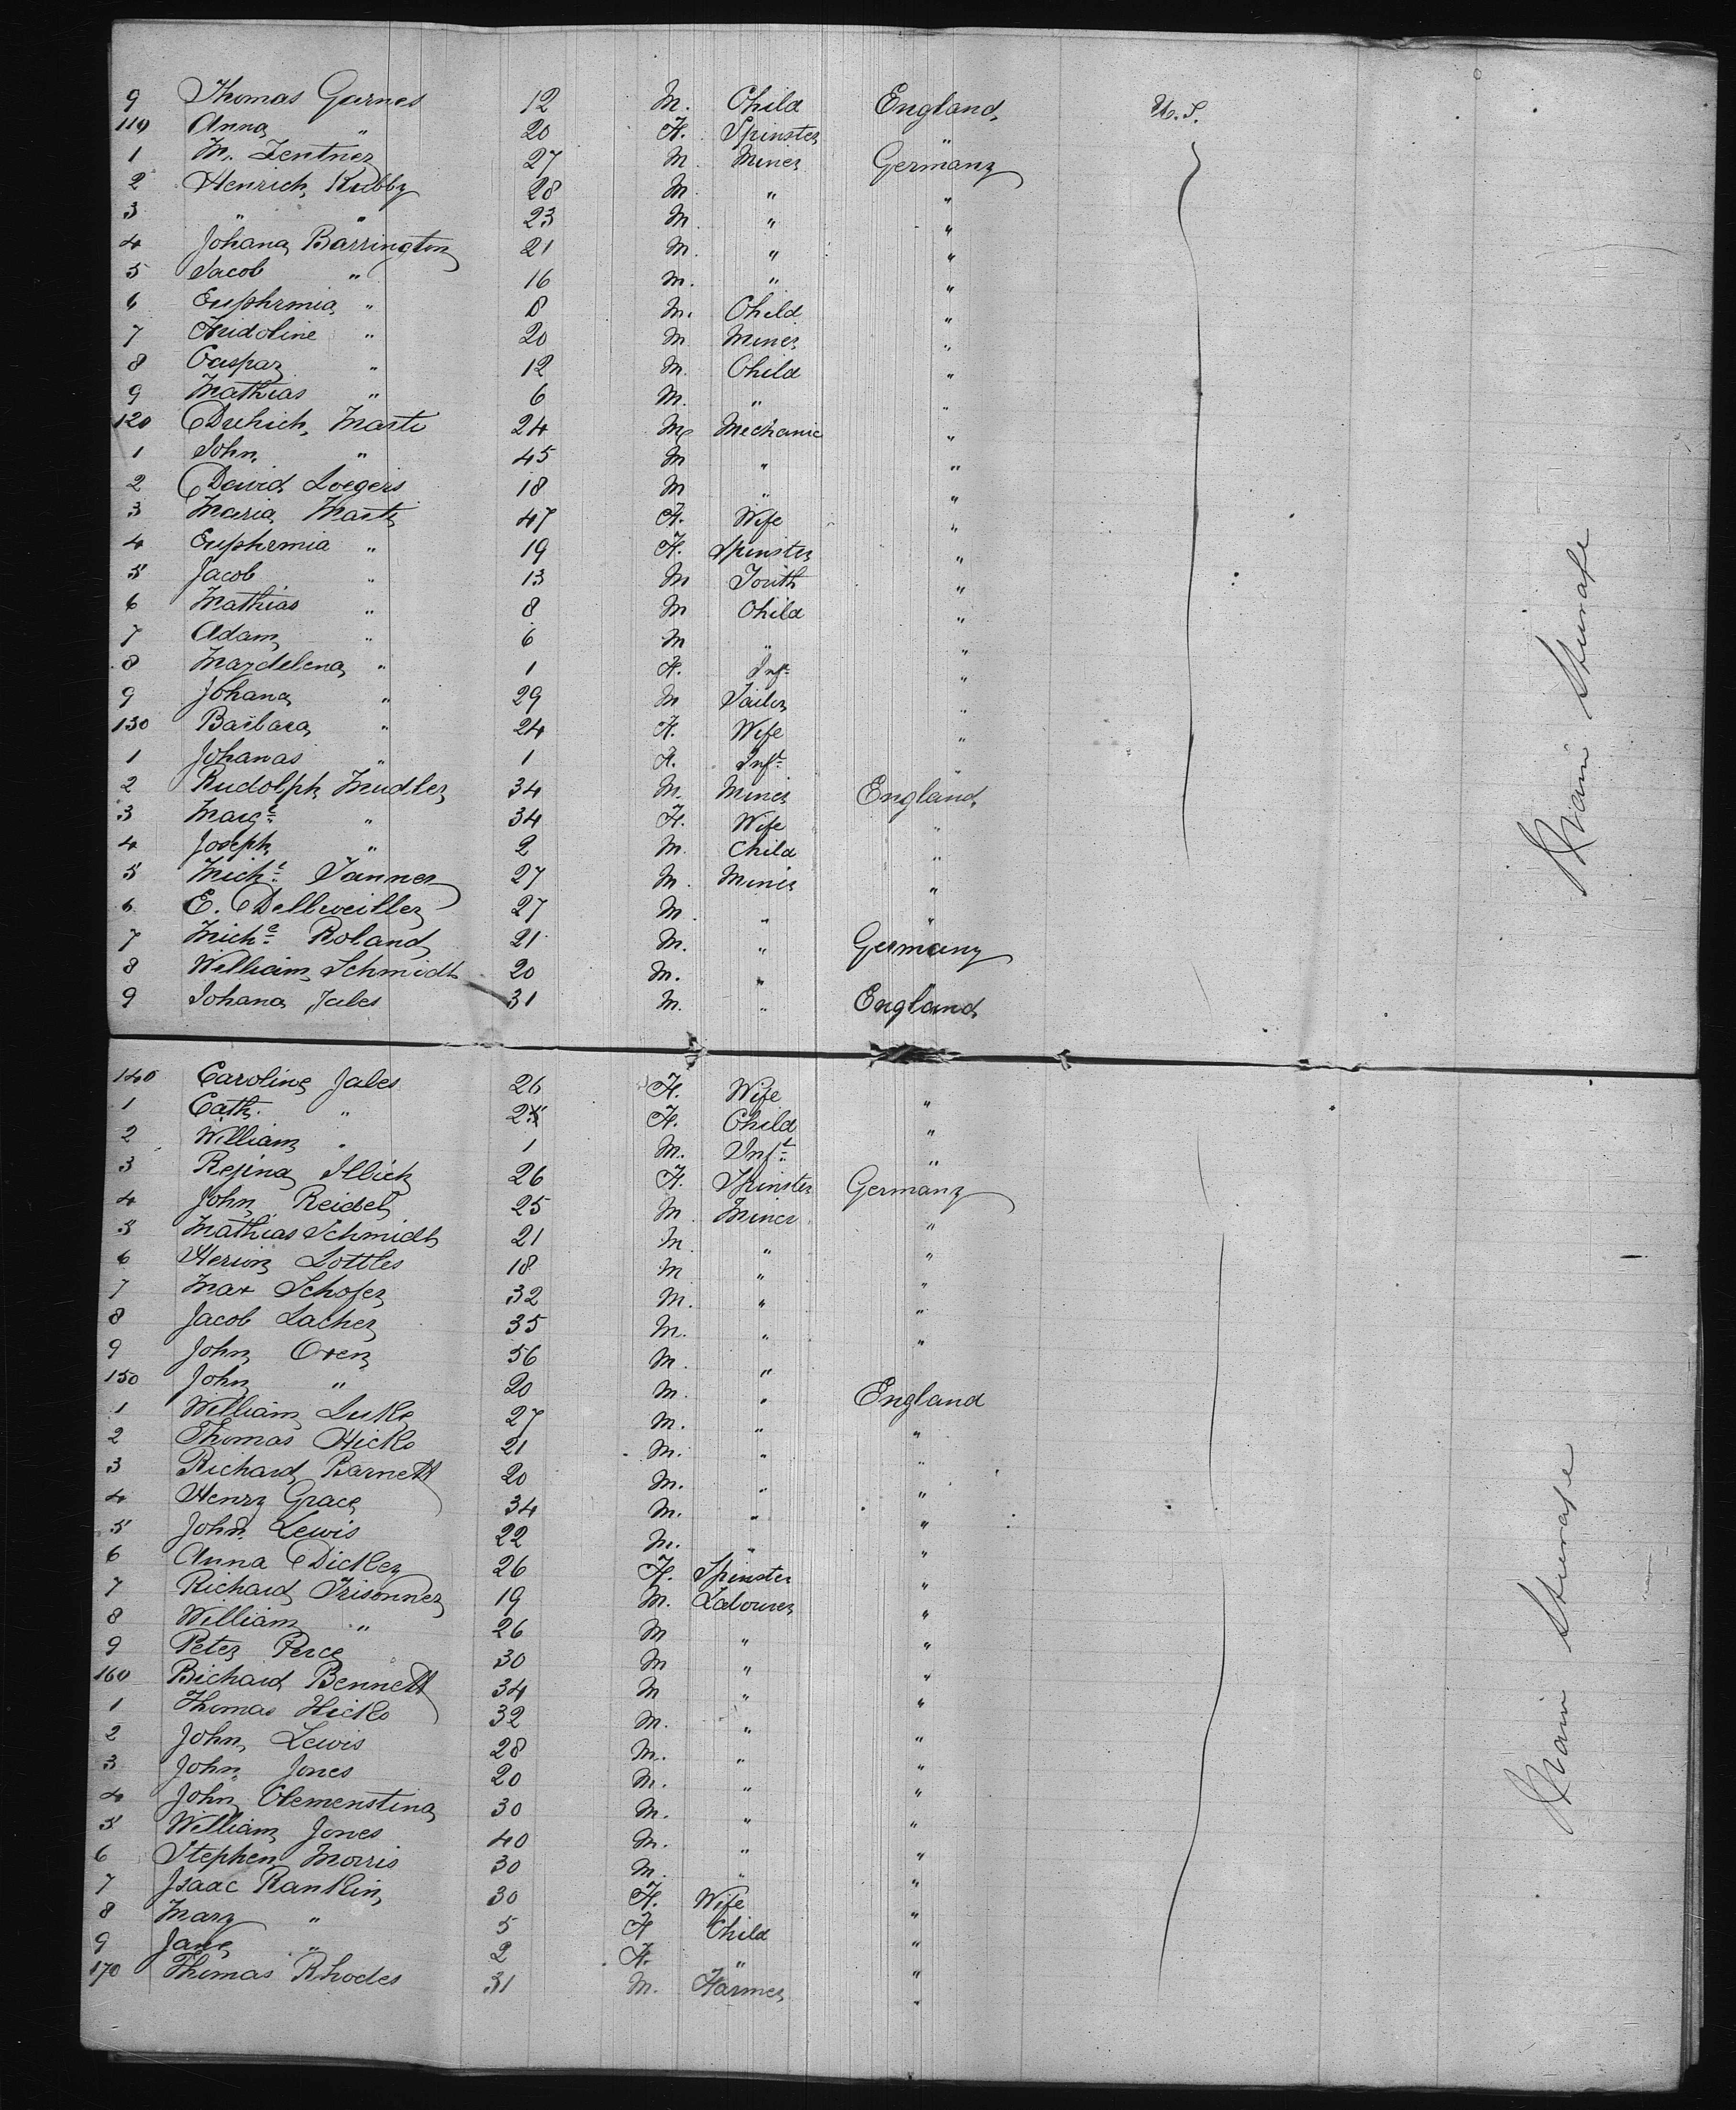 9 Thomas Garnes 12 M. Child England, U.S.
110 Anna " 20 F. Spinster "
1 M. Zentner 27 M Miner Germany
2 Henrich Kubby 28 M. " "
3 " " 23 M " "
4 Johana Barrington 21 M. " "
5 Jacob " 16 M. " "
6 Euphemia " 8 M. Child "
7 Fudoline " 20 M Miner "
8 Caspar " 12 M. Child "
9 Mathias " 6 M. " "
120 Marti 24 M Mechanic "
1 John " 45 M " "
2 David Loegers 18 M " "
3 Maria Marti 47 F. Wife "
4 Euphemia " 19 F. Spinster "
5 Jacob " 13 M Youth "
6 Mathias " 8 M Child "
7 Adam " 6 M " "
8 Magdelena " 1 F. Inft "
9 Johana " 29 M Tailor "
130 Barbara " 24 F. Wife "
1 Johanas " 1 F. Inft "
2 Rudolph Mudler 34 M. Miner England,
3 Margt " 34 F. Wife "
4 Joseph " 2 M. Child "
5 Michl Tanner 27 M. Miner "
6 E. Dellweiller 27 M. " "
7 Michl Roland 21 M. " Germany
8 William Schmidt 20 M. "
9 Johana Jales 31 M. " England
Main Steerage
140 Caroline Jales 26 F. Wife "
1 Cath. " 2 F. Child "
2 William " 1 M. Inft "
3 Regina Illich 26 F. Spinster Germany
4 John Reidel 25 M Miner "
5 Mathias Schmidt 21 M " "
6 Herion Lottles 18 M " "
7 Max Schofer 32 M. " "
8 Jacob Lacher 35 M. " "
9 John Oxen 56 M. "
150 John " 20 M. " England
1 William Luke 27 M. " "
2 Thomas Hicks 21 M. " "
3 Richard Barnett 20 M. " "
4 Henry Grace 34 M. " "
5 John Lewis 22 M. " "
6 Anna Dickley 26 F. Spinster "
7 Richard Trisonner 19 M. Labourer "
8 William " 26 M " "
9 Peter Perce 30 M " "
160 Richard Bennett 34 M " "
1 Thomas Hicks 32 M. " "
2 John Lewis 28 M. " "
3 John Jones 20 M. " "
4 John Clemenstina 30 M. " "
5 William Jones 40 M. " "
6 Stephen Morris 30 M. " "
7 Isaac Ranklin 30 F. Wife "
8 Mary " 5 F Child "
9 Jane " 2 F. " "
170 Thomas Rhodes 31 M. Farmer "
Main Steerage